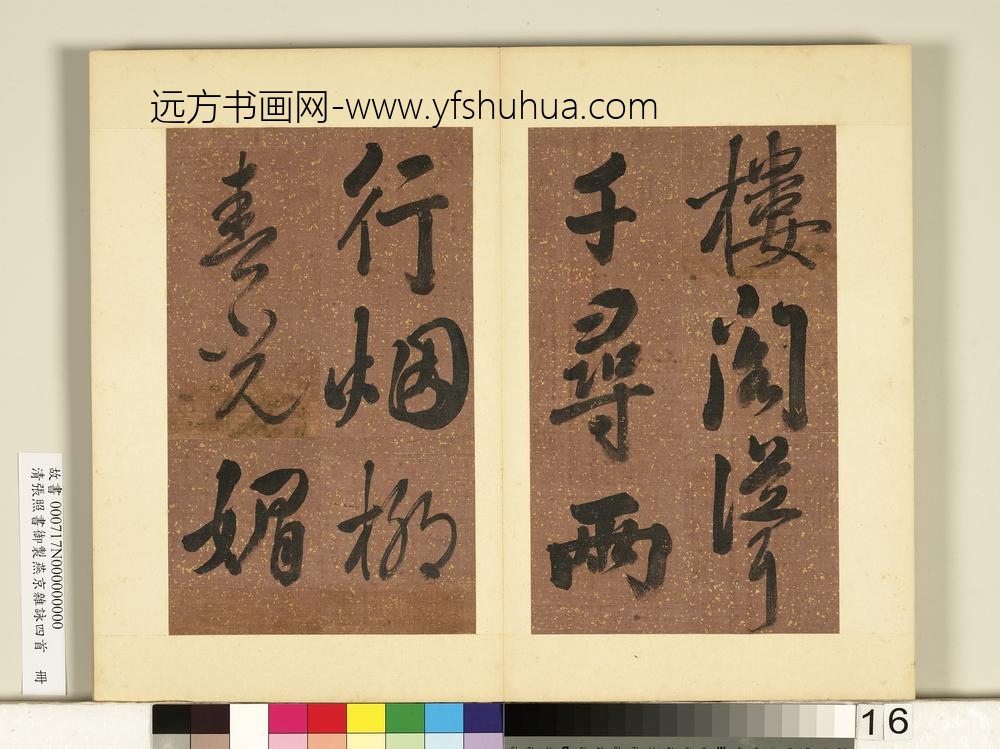 远方书画网-www.yfshuhua.com
樓閣聳
千尋兩
行烟柳
春光媚
故書 000717N000000000
清張照書御製燕京雜詠四首 冊
16